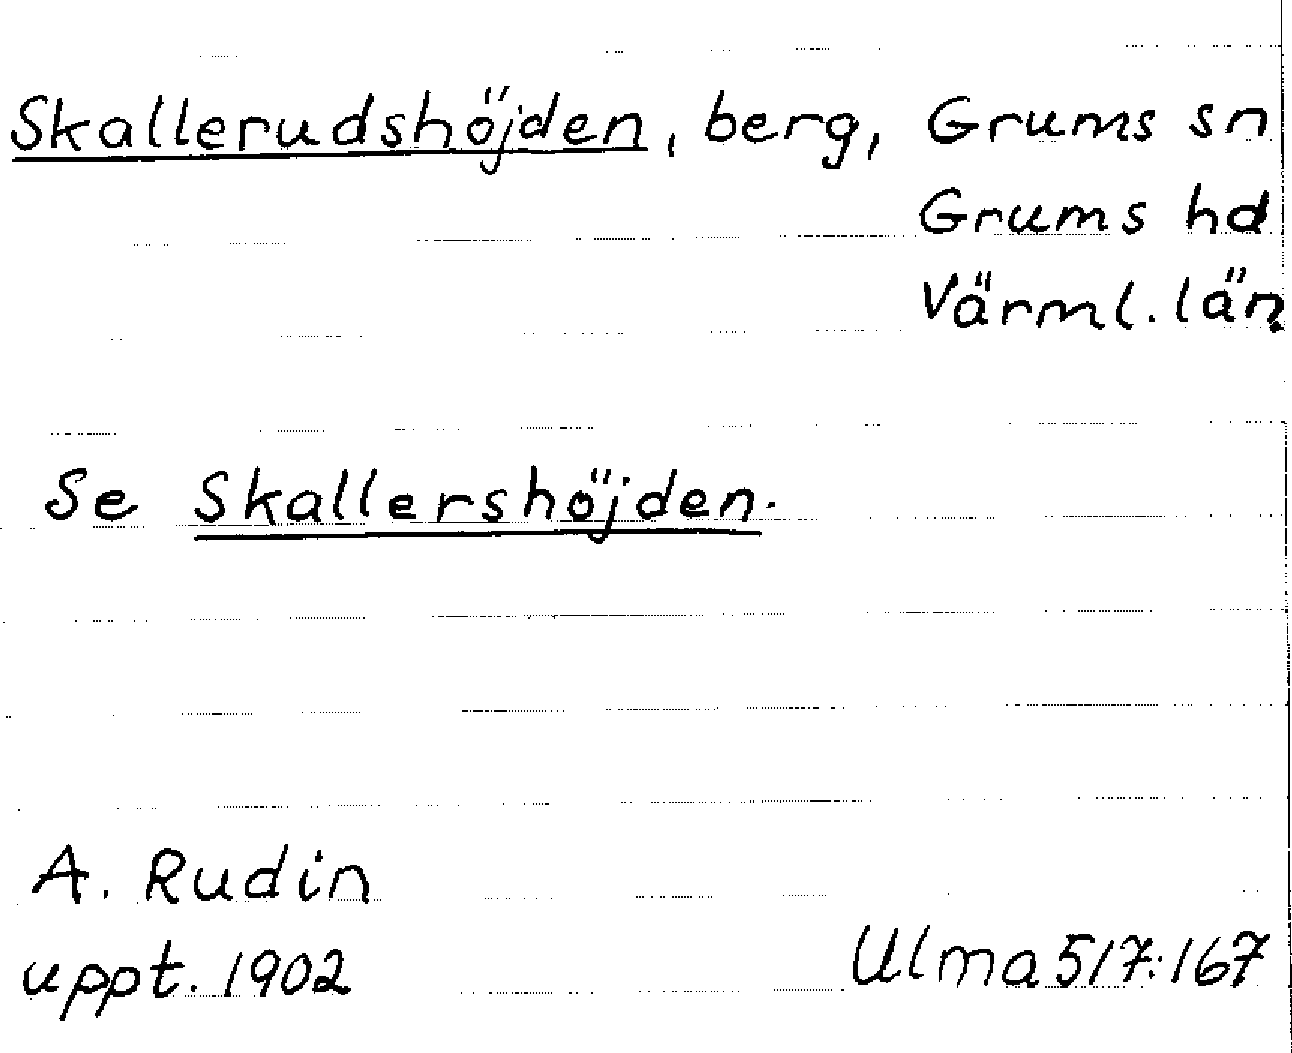 Skallerudshöjden, berg, Grums sn
Grums hd
Värml. län
Se Skallershöjden.
A. Rudin
uppt. 1902
Ulma 517:167